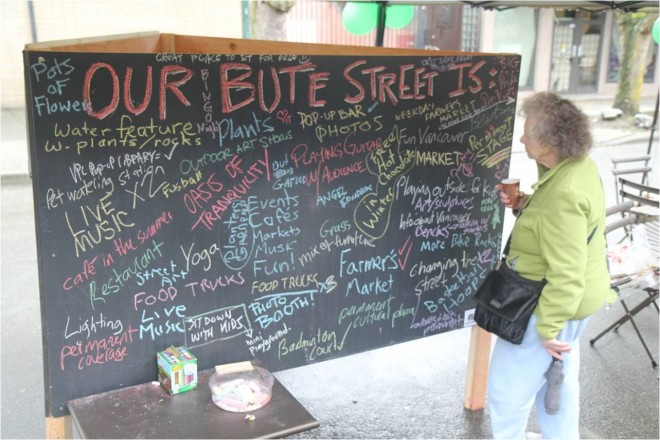 GREAT PLACE TO SIT FOR
OUR BUTE STREET IS:
Pots of Flowers
BINGO Night
Water feature
w. plants / rocks
Plants
POP-UP BAR
PHOTOS
WEEKDAY FARMERS MARKET
VPL POP UP LIBRARY
Pet watering station X2
Fusball
OUTDOOR ART
OASIS OF TRANQUILITY
PLAYING GUITAR
W/ AUDIENCE
Fun Vancouver
MARKET
STAGE
Hot Chocolate in Winter
LIVE MUSIC
Events
Cafés
Markets
Music
Fun!
ANGEL
Grass
Playing outside
Art/sculptures
Benches
More Bike Racks
café in the summer
Restaurant
Street Art
Yoga
FOOD TRUCKS
FOOD TRUCKS X3
mix of furniture
Farmer's Market
Changing the Street
X2
Lighting
permanent coverage
Live Music
SIT DOWN WITH KIDS
PHOTO BOOTH!
mini playground.
permanent cultural plaza
Badminton Court